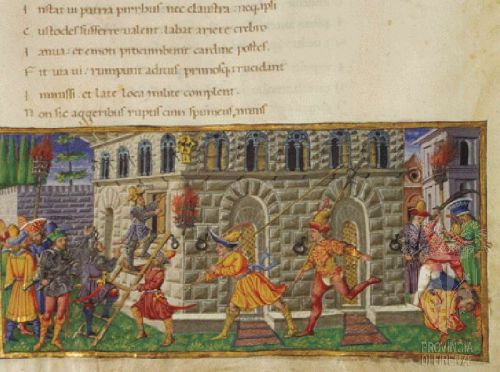 I nstat ui patria pirrhus nec claustra neq; ipsi
C ustodes sufferre ualent labat ariete crebro
I anua: et emoti procumbunt cardine postes.
F it uia ui: rumpunt aditus primosq; trucidant
I mmissi: et late loca milite complent.
N on sic aggeribus ruptis cum spumeus, amnis
PROVINCIA
DI FIRENZE